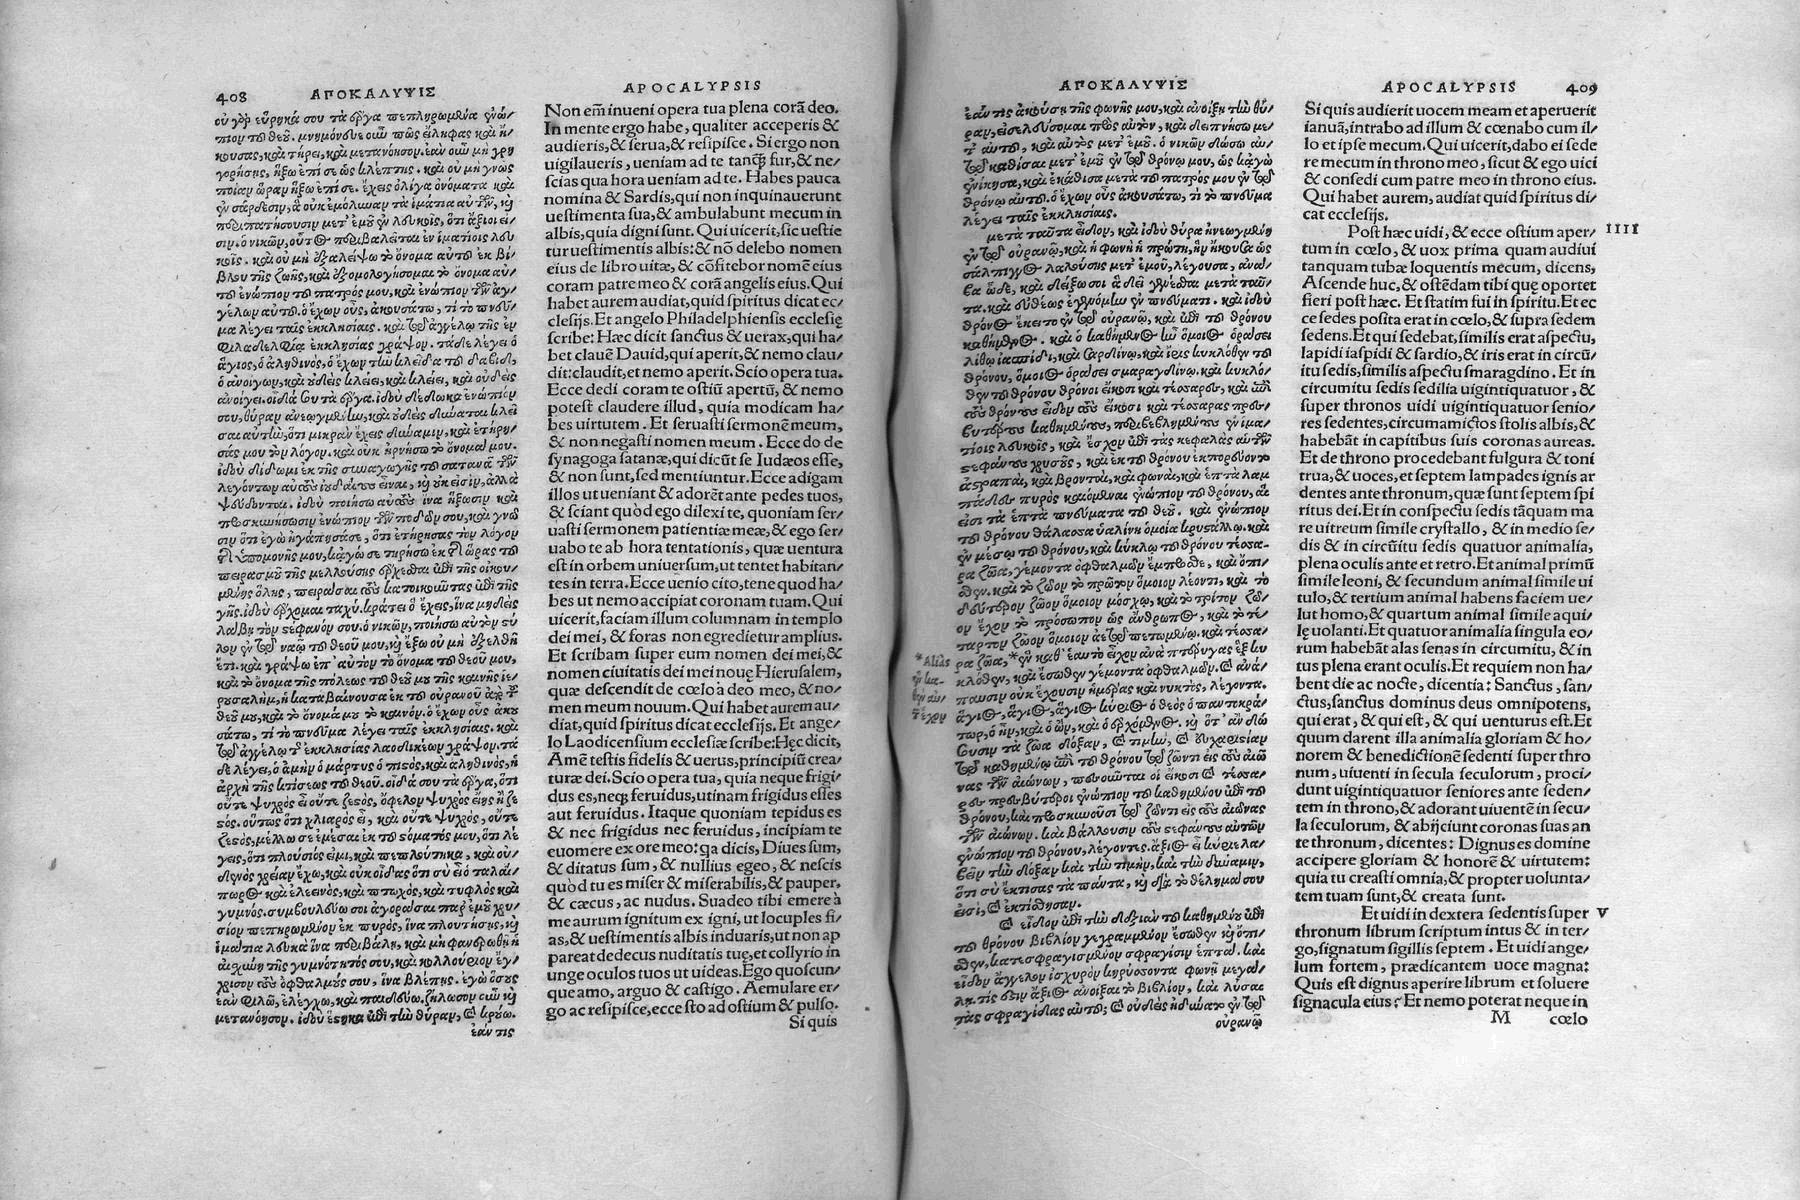 408
ΑΠΟΚΑΛΥΨΙΣ
οὐ γὰρ εὕρηκά σου τὰ ἔργα πεπληρωμένα ἐνώ/
πιον τοῦ θεοῦ. μνημόνευε οὖν πῶς εἴληφας καὶ ἤ/
κουσας, καὶ τήρει, καὶ μετανόησον. ἐὰν οὖν μὴ γρη
γορήσῃς, ἥξω ἐπί σε ὡς κλέπτης. καὶ οὐ μὴ γνῷς
ποίαν ὥραν ἥξω ἐπί σε. ἔχεις ὀλίγα ὀνόματα καὶ
ἐν σάρδεσιν, ἃ οὐκ ἐμόλυναν τὰ ἱμάτια αὐτῶν, καὶ
περιπατήσουσιν μετ' ἐμοῦ ἐν λευκοῖς, ὅτι ἄξιοι εἰ/
σιν. ὁ νικῶν, οὗτος περιβαλεῖται ἐν ἱματίοις λευ
κοῖς. καὶ οὐ μὴ ἐξαλείψω τὸ ὄνομα αὐτοῦ ἐκ βί/
βλου τῆς ζωῆς, καὶ ἐξομολογήσομαι τὸ ὄνομα αὐ/
τοῦ ἐνώπιον τοῦ πατρός μου, καὶ ἐνώπιον τῶν ἀγ/
γέλων αὐτοῦ. ὁ ἔχων οὖς, ἀκουσάτω, τί τὸ πνεῦ/
μα λέγει ταῖς ἐκκλησίαις. καὶ τῷ ἀγγέλῳ τῆς ἐν
φιλαδελφίᾳ ἐκκλησίας γράψον. τάδε λέγει ὁ
ἅγιος, ὁ ἀληθινὸς, ὁ ἔχων τὴν κλεῖδα τοῦ δαβίδ,
ὁ ἀνοίγων, καὶ οὐδεὶς κλείει, καὶ κλείει, καὶ οὐδεὶς
ἀνοίγει. οἶδά σου τὰ ἔργα. ἰδοὺ δέδωκα ἐνώπιόν
σου, θύραν ἀνεῳγμένην, καὶ οὐδεὶς δύναται κλεῖ
σαι αὐτὴν, ὅτι μικρὰν ἔχεις δύναμιν, καὶ ἐτήρη/
σάς μου τὸν λόγον. καὶ οὐκ ἠρνήσω τὸ ὄνομά μου.
ἰδοὺ δίδωμι ἐκ τῆς συναγωγῆς τοῦ σατανᾶ τῶν
λεγόντων αὑτοὺς ἰουδαίους εἶναι, καὶ οὐκ εἰσὶν, ἀλλὰ
ψεύδονται. ἰδοὺ ποιήσω αὐτοὺς ἵνα ἥξωσιν καὶ
προσκυνήσωσιν ἐνώπιον τῶν ποδῶν σου, καὶ γνῶ
σιν ὅτι ἐγὼ ἠγάπησά σε, ὅτι ἐτήρησας τὸν λόγον
τῆς ὑπομονῆς μου, κἀγώ σε τηρήσω ἐκ τῆς ὥρας τοῦ
πειρασμοῦ τῆς μελλούσης ἔρχεσθαι ἐπὶ τῆς οἰκου/
μένης ὅλης, πειράσαι τοὺς κατοικοῦντας ἐπὶ τῆς
γῆς. ἰδοὺ ἔρχομαι ταχύ. κράτει ὃ ἔχεις, ἵνα μηδεὶς
λάβῃ τὸν στέφανόν σου. ὁ νικῶν, ποιήσω αὐτὸν στύ
λον ἐν τῷ ναῷ τοῦ θεοῦ μου, καὶ ἔξω οὐ μὴ ἐξέλθῃ
ἔτι. καὶ γράψω ἐπ' αὐτὸν τὸ ὄνομα τοῦ θεοῦ μου,
καὶ τὸ ὄνομα τῆς πόλεως τοῦ θεοῦ μου τῆς καινῆς ἱε/
ρουσαλὴμ, ἣ καταβαίνουσα ἐκ τοῦ οὐρανοῦ ἀπὸ τοῦ
θεοῦ μου, καὶ τὸ ὄνομά μου τὸ καινόν. ὁ ἔχων οὖς ἀκου
σάτω, τί τὸ πνεῦμα λέγει ταῖς ἐκκλησίαις. καὶ
τῷ ἀγγέλῳ τῆς ἐκκλησίας λαοδικέων γράψον. τά
δε λέγει, ὁ ἀμὴν ὁ μάρτυς ὁ πιστὸς, καὶ ἀληθινὸς, ἡ
ἀρχὴ τῆς κτίσεως τοῦ θεοῦ. οἶδά σου τὰ ἔργα, ὅτι
οὔτε ψυχρὸς εἶ οὔτε ζεστὸς, ὄφελον ψυχρὸς εἴης ἢ ζε
στός. οὕτως ὅτι χλιαρὸς εἶ, καὶ οὔτε ψυχρὸς, οὔτε
ζεστὸς, μέλλω σε ἐμέσαι ἐκ τοῦ στόματός μου, ὅτι λέ
γεις, ὅτι πλούσιός εἰμι, καὶ πεπλούτηκα, καὶ οὐ/
δενὸς χρείαν ἔχω, καὶ οὐκ οἶδας ὅτι σὺ εἶ ὁ ταλαί/
πωρος καὶ ἐλεεινὸς, καὶ πτωχὸς, καὶ τυφλὸς καὶ
γυμνός. συμβουλεύω σοι ἀγοράσαι παρ' ἐμοῦ χρυ/
σίον πεπυρωμένον ἐκ πυρὸς, ἵνα πλουτήσῃς, καὶ
ἱμάτια λευκὰ ἵνα περιβάλῃ, καὶ μὴ φανερωθῇ ἡ
αἰσχύνη τῆς γυμνότητός σου, καὶ κολλούριον ἔγ/
χρισον τοὺς ὀφθαλμούς σου, ἵνα βλέπῃς. ἐγὼ ὅσους
ἐὰν φιλῶ, ἐλέγχω, καὶ παιδεύω. ζήλωσον οὖν καὶ
μετανόησον. ἰδοὺ ἕστηκα ἐπὶ τὴν θύραν, καὶ κρούω.
ἐάν τις
APOCALYPSIS
Non em̃ inueni opera tua plena corã deo.
In mente ergo habe, qualiter acceperis &
audieris, & serua, & resipisce. Si ergo non
uigilaueris, ueniam ad te tanq̃ fur, & ne/
scias qua hora ueniam ad te. Habes pauca
nomina & Sardis, qui non inquinauerunt
uestimenta sua, & ambulabunt mecum in
albis, quia digni sunt. Qui uicerit, sic uestie
tur uestimentis albis: & nõ delebo nomen
eius de libro uitæ, & cõfitebor nomẽ eius
coram patre meo & corã angelis eius. Qui
habet aurem audiat, quid spiritus dicat ec/
clesijs. Et angelo Philadelphiensis ecclesię
scribe: Hæc dicit sanctus & uerax, qui ha/
bet clauẽ Dauid, qui aperit, & nemo clau/
dit: claudit, et nemo aperit. Scio opera tua.
Ecce dedi coram te ostiũ apertũ, & nemo
potest claudere illud, quia modicam ha/
bes uirtutem. Et seruasti sermonẽ meum,
& non negasti nomen meum. Ecce do de
synagoga satanæ, qui dicũt se Iudæos esse,
& non sunt, sed mentiuntur. Ecce adigam
illos ut ueniant & adorẽt ante pedes tuos,
& sciant quòd ego dilexi te, quoniam ser/
uasti sermonem patientiæ meæ, & ego ser/
uabo te ab hora tentationis, quæ uentura
est in orbem uniuersum, ut tentet habitan/
tes in terra. Ecce uenio cito, tene quod ha/
bes ut nemo accipiat coronam tuam. Qui
uicerit, faciam illum columnam in templo
dei mei, & foras non egredietur amplius.
Et scribam super eum nomen dei mei, &
nomen ciuitatis dei mei nouę Hierusalem,
quæ descendit de cœlo à deo meo, & no/
men meum nouum. Qui habet aurem au/
diat, quid spiritus dicat ecclesijs. Et ange/
lo Laodicensium ecclesiæ scribe: Hęc dicit,
Amẽ testis fidelis & uerus, principiũ crea/
turæ dei. Scio opera tua, quia neque frigi/
dus es, neq; feruidus, utinam frigidus esses
aut feruidus. Itaque quoniam tepidus es
& nec frigidus nec feruidus, incipiam te
euomere ex ore meo: qa dicis, Diues sum,
& ditatus sum, & nullius egeo, & nescis
quòd tu es miser & miserabilis, & pauper,
& cæcus, ac nudus. Suadeo tibi emere à
me aurum ignitum ex igni, ut locuples fi/
as, & uestimentis albis induaris, ut non ap
pareat dedecus nuditatis tuę, et collyrio in
unge oculos tuos ut uideas. Ego quoscun/
que amo, arguo & castigo. Aemulare er/
go ac resipisce, ecce sto ad ostium & pulso.
Si quis
ΑΠΟΚΑΛΥΨΙΣ
ἐάν τις ἀκούσῃ τῆς φωνῆς μου, καὶ ἀνοίξῃ τὴν θύ/
ραν, εἰσελεύσομαι πρὸς αὐτὸν, καὶ δειπνήσω με/
τ' αὐτοῦ, καὶ αὐτὸς μετ' ἐμοῦ. ὁ νικῶν δώσω αὐ/
τῷ καθίσαι μετ' ἐμοῦ ἐν τῷ θρόνῳ μου, ὡς κἀγὼ
ἐνίκησα, καὶ ἐκάθισα μετὰ τοῦ πατρός μου ἐν τῷ
θρόνῳ αὐτοῦ. ὁ ἔχων οὖς ἀκουσάτω, τί τὸ πνεῦμα
λέγει ταῖς ἐκκλησίαις.
μετὰ ταῦτα εἶδον, καὶ ἰδοὺ θύρα ἠνεῳγμένη
ἐν τῷ οὐρανῷ, καὶ ἡ φωνὴ ἡ πρώτη, ἣν ἤκουσα ὡς
σάλπιγγος λαλούσης μετ' ἐμοῦ, λέγουσα, ἀνά/
βα ὧδε, καὶ δείξω σοι ἃ δεῖ γενέσθαι μετὰ ταῦ/
τα. καὶ εὐθέως ἐγενόμην ἐν πνεύματι. καὶ ἰδοὺ
θρόνος ἔκειτο ἐν τῷ οὐρανῷ, καὶ ἐπὶ τοῦ θρόνου
καθήμενος. καὶ ὁ καθήμενος ἦν ὅμοιος ὁράσει
λίθῳ ἰάσπιδι, καὶ σαρδίνῳ, καὶ ἶρις κυκλόθεν τοῦ
θρόνου, ὅμοιος ὁράσει σμαραγδίνῳ. καὶ κυκλό/
θεν τοῦ θρόνου θρόνοι εἴκοσι καὶ τέσσαρες, καὶ ἐπὶ
τοὺς θρόνους εἶδον τοὺς εἴκοσι καὶ τέσσαρας πρεσ/
βυτέρους καθημένους, περιβεβλημένους ἐν ἱμα/
τίοις λευκοῖς, καὶ ἔσχον ἐπὶ τὰς κεφαλὰς αὐτῶν
στεφάνους χρυσοῦς, καὶ ἐκ τοῦ θρόνου ἐκπορεύοντο
ἀστραπαὶ, καὶ βρονταὶ, καὶ φωναὶ, καὶ ἑπτὰ λαμ
πάδες πυρὸς καιόμεναι ἐνώπιον τοῦ θρόνου, αἵ
εἰσι τὰ ἑπτὰ πνεύματα τοῦ θεοῦ. καὶ ἐνώπιον
τοῦ θρόνου θάλασσα ὑαλίνη ὁμοία κρυστάλλῳ. καὶ
ἐν μέσῳ τοῦ θρόνου, καὶ κύκλῳ τοῦ θρόνου τέσσα-
ρα ζῶα, γέμοντα ὀφθαλμῶν ἔμπροσθε, καὶ ὄπι/
θεν. καὶ τὸ ζῶον τὸ πρῶτον ὅμοιον λέοντι, καὶ τὸ
δεύτερον ζῶον ὅμοιον μόσχῳ, καὶ τὸ τρίτον ζῶ/
ον ἔχον τὸ πρόσωπον ὡς ἄνθρωπος, καὶ τὸ τέ/
ταρτον ζῶον ὅμοιον ἀετῷ πετωμένῳ. καὶ τέσσα/
ρα ζῶα, *ἓν καθ' ἑαυτὸ εἶχον ἀνὰ πτέρυγας ἓξ κυ
κλόθεν, καὶ ἔσωθεν γέμοντα ὀφθαλμῶν. καὶ ἀνά/
παυσιν οὐκ ἔχουσιν ἡμέρας καὶ νυκτὸς, λέγοντα.
ἅγιος, ἅγιος, ἅγιος κύριος ὁ θεὸς ὁ παντοκρά/
τωρ, ὁ ἦν, καὶ ὁ ὢν, καὶ ὁ ἐρχόμενος. καὶ ὅτ' ἂν δώ
σουσιν τὰ ζῶα δόξαν, καὶ τιμὴν, καὶ εὐχαριστίαν
τῷ καθημένῳ ἐπὶ τοῦ θρόνου τῷ ζῶντι εἰς τοὺς αἰῶ
νας τῶν αἰώνων, πεσοῦνται οἱ εἴκοσι καὶ τέσσα/
ρες πρεσβύτεροι ἐνώπιον τοῦ καθημένου ἐπὶ τοῦ
θρόνου, καὶ προσκυνοῦσι τῷ ζῶντι εἰς τοὺς αἰῶνας
τῶν αἰώνων. καὶ βάλλουσιν τοὺς στεφάνους αὐτῶν
ἐνώπιον τοῦ θρόνου, λέγοντες. ἄξιος εἶ κύριε λα/
βεῖν τὴν δόξαν καὶ τὴν τιμὴν, καὶ τὴν δύναμιν,
ὅτι σὺ ἔκτισας τὰ πάντα, καὶ διὰ τὸ θέλημά σου
εἰσὶ, καὶ ἐκτίσθησαν.
καὶ εἶδον ἐπὶ τὴν δεξιὰν τοῦ καθημένου ἐπὶ
τοῦ θρόνου βιβλίον γεγραμμένον ἔσωθεν καὶ ὄπι/
θεν, κατεσφραγισμένον σφραγῖσιν ἑπτά. καὶ
εἶδον ἄγγελον ἰσχυρὸν κηρύσσοντα φωνῇ μεγά/
λῃ. τίς ἐστιν ἄξιος ἀνοῖξαι τὸ βιβλίον, καὶ λῦσαι
τὰς σφραγίδας αὐτοῦ; καὶ οὐδεὶς ἠδύνατο ἐν τῷ
οὐρανῷ
*Aliàs
APOCALYPSIS
409
Si quis audierit uocem meam et aperuerit
ianuã, intrabo ad illum & cœnabo cum il/
lo et ipse mecum. Qui uicerit, dabo ei sede
re mecum in throno meo, sicut & ego uici
& consedi cum patre meo in throno eius.
Qui habet aurem, audiat quid spiritus di/
cat ecclesijs.
Post hæc uidi, & ecce ostium aper/
IIII
tum in cœlo, & uox prima quam audiui
tanquam tubæ loquentis mecum, dicens,
Ascende huc, & ostẽdam tibi quę oportet
fieri post hæc. Et statim fui in spiritu. Et ec
ce sedes posita erat in cœlo, & supra sedem
sedens. Et qui sedebat, similis erat aspectu,
lapidi iaspidi & sardio, & iris erat in circũ/
itu sedis, similis aspectu smaragdino. Et in
circumitu sedis sedilia uigintiquatuor, &
super thronos uidi uigintiquatuor senio/
res sedentes, circumamictos stolis albis, &
habebãt in capitibus suis coronas aureas.
Et de throno procedebant fulgura & toni
trua, & uoces, et septem lampades ignis ar
dentes ante thronum, quæ sunt septem spi
ritus dei. Et in conspectu sedis tãquam ma
re uitreum simile crystallo, & in medio se/
dis & in circũitu sedis quatuor animalia,
plena oculis ante et retro. Et animal primũ
simile leoni, & secundum animal simile ui
tulo, & tertium animal habens faciem ue/
lut homo, & quartum animal simile aqui/
lę uolanti. Et quatuor animalia singula eo/
rum habebãt alas senas in circumitu, & in
tus plena erant oculis. Et requiem non ha/
bent die ac nocte, dicentia: Sanctus, san/
ctus, sanctus dominus deus omnipotens,
qui erat, & qui est, & qui uenturus est. Et
quum darent illa animalia gloriam & ho/
norem & benedictionẽ sedenti super thro
num, uiuenti in secula seculorum, proci/
dunt uigintiquatuor seniores ante seden/
tem in throno, & adorant uiuentẽ in secu/
la seculorum, & abijciunt coronas suas an
te thronum, dicentes: Dignus es domine
accipere gloriam & honorẽ & uirtutem:
quia tu creasti omnia, & propter uolunta/
tem tuam sunt, & creata sunt.
Et uidi in dextera sedentis super
V
thronum librum scriptum intus & in ter/
go, signatum sigillis septem. Et uidi ange/
lum fortem, prædicantem uoce magna:
Quis est dignus aperire librum et soluere
signacula eius? Et nemo poterat neque in
M
cœlo